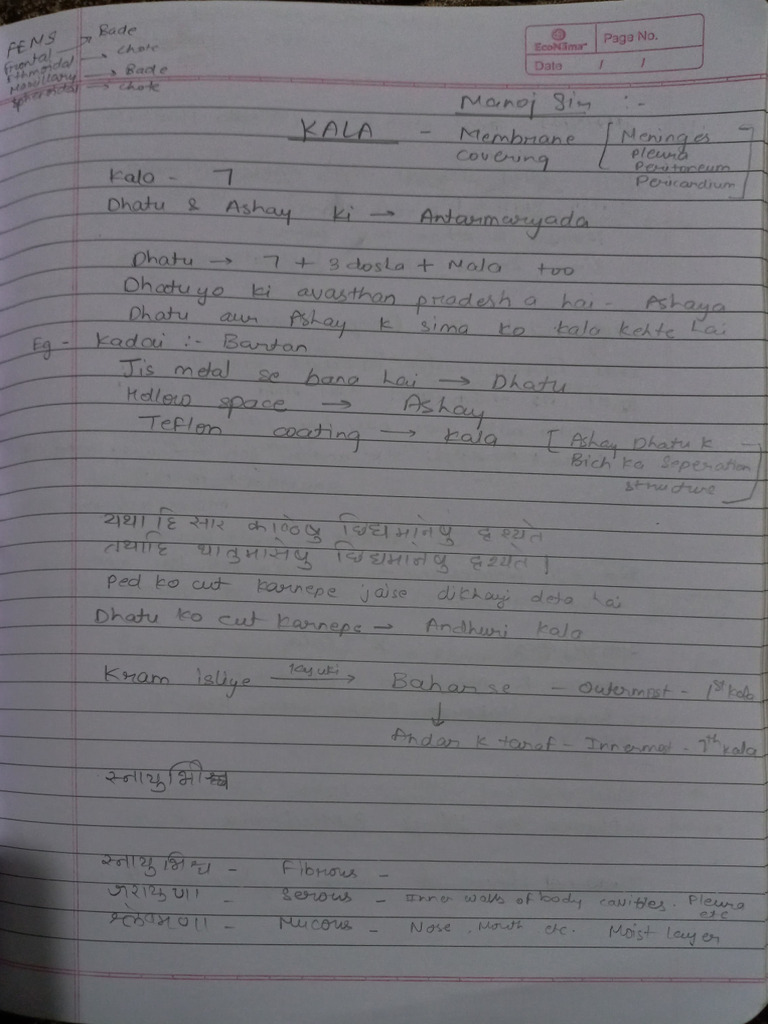 FEMS
Frontal → Bade
Ethmoidal → chote
Maxillary → Bade
Sphenoidal → chote
EcoNامur
Page No.
Date / /
Manoj Sir :-
KALA - Membrane [Meninges
covering Pleura
Peritoneum
Pericardium]
Kala - 7
Dhatu & Ashay ki → Antarmaryada
Dhatu → 7 + 3 dosha + Mala too
Dhatuyo ki avasthan pradesh a hai - Ashaya
Dhatu aur Ashay k sima ko kala kehte hai
Eg - Kadai :- Bartan
Jis metal se bana hai → Dhatu
Hollow space → Ashay
Teflon coating → Kala [Ashay Dhatu k
Bich ka Seperation
structure]
यथा हि सार काष्ठेषु छिद्यमानेषु दृश्यते
तथाहि धातुमांसेषु छिद्यमानेषु दृश्यते।
Ped ko cut karnepe jaise dikhayi deta hai
Dhatu ko cut karnepe → Andhuri kala
Kram isliye kayuki → Baharse - Outermost - 1st Kala
↓
Andar k taraf - Innermost - 7th kala
स्नायुभिश्च - Fibrous -
जरायुणा - Serous - inner walls of body cavities. Pleura
etc
श्लेष्मणा - Mucous - Nose, Mouth etc. Moist layer